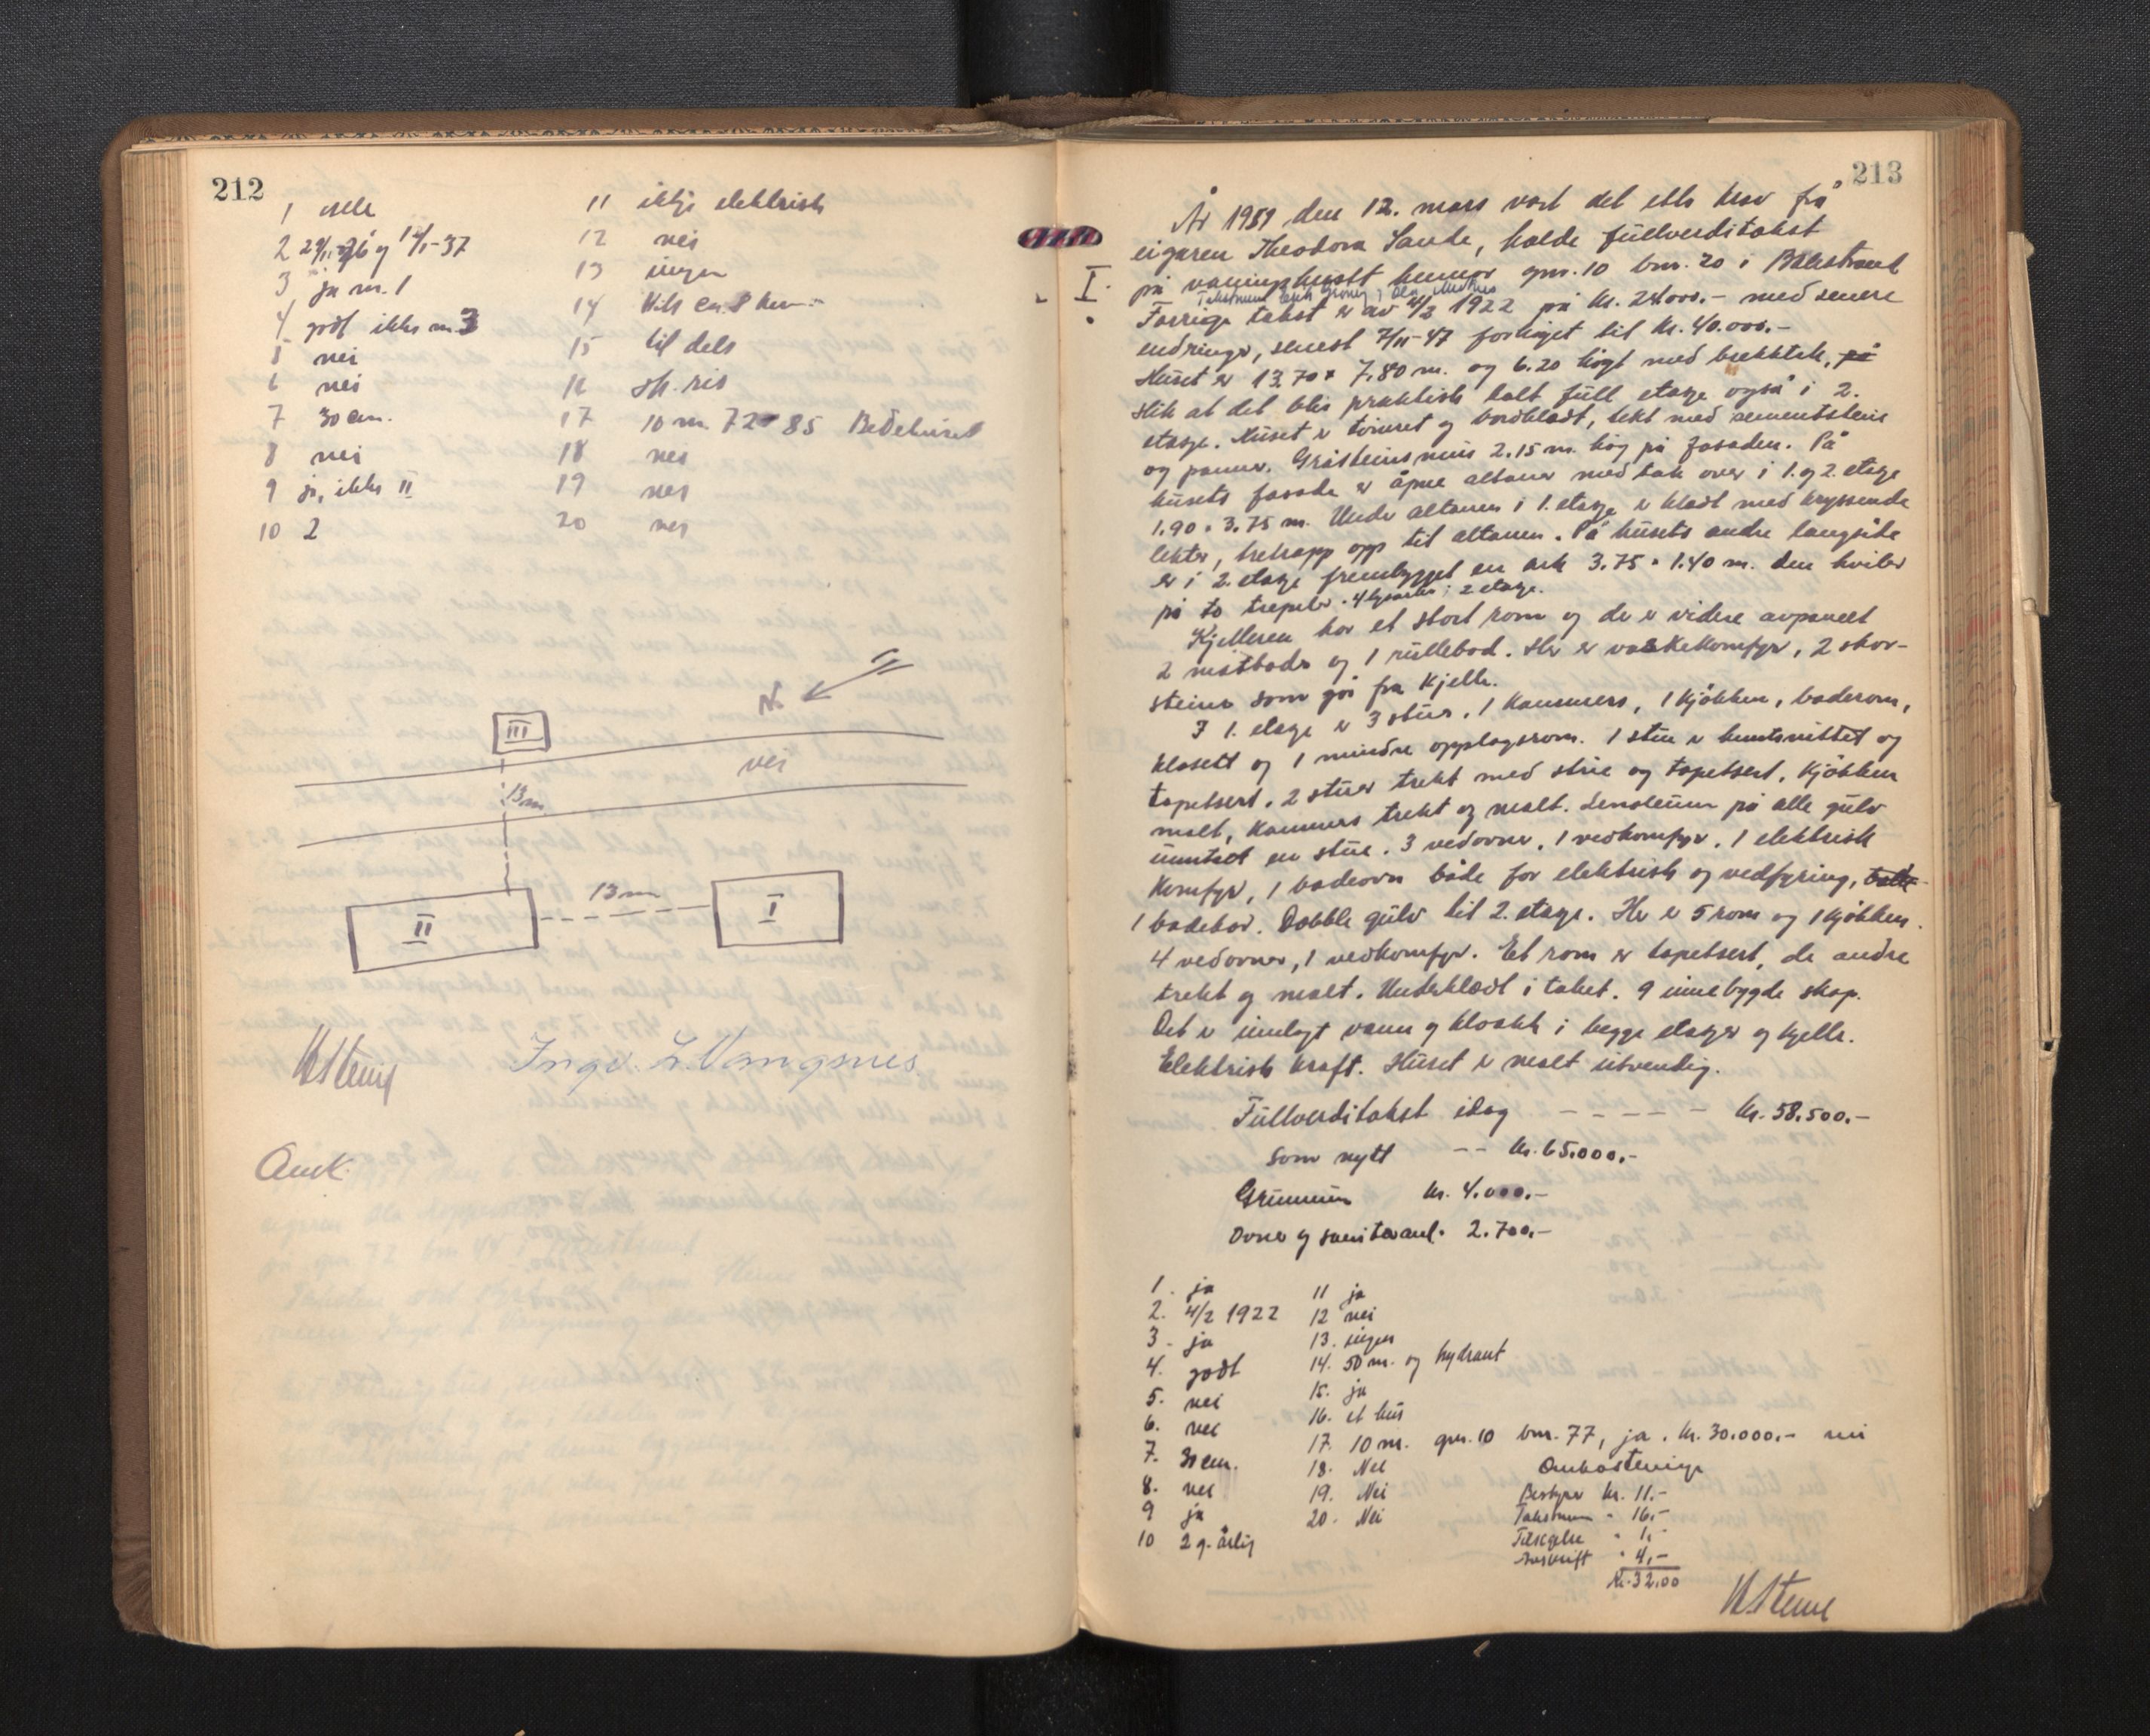 212
1 eldre
2 29/11-26 og 14/1-37
3 ja m. 1
4 godt ikke m 3
5 nei
6 nei
7 30 cm.
8 nei
9 ja, ikke II
10 2
11 ikkje elektrisk
12 nei
13 ingen
14 Vik ca. 8 km.-
15 til dels
16 sp. ris
17 10 m. 72-85 Bedehuset
18 nei
19 nei
20 nei
N
III
vei
13m
13m
II
I
Ingv. L. Vangsnes
Omk.
213
År 1951 den 12. mars vart det etter krav frå
eigaren Theodora Sande, halde fullverditakst
I. på hennar gnr. 10 bnr. 20 i Balestrand
Takstmenn og Ola
Forrige takst er av 4/2 1922 på kr. 24.000.- med senere
endringer, senest 7/11-47 forhøget til kr. 40.000.-
Huset er 13.70 x 7.80 m. og 6.20 høgt med brekktak, på
slik at det blir praktisk talt full etasje også i 2.
etasje. Huset er tømret og bordkledt, tekt med sementsteine
og panner. Gråsteinsmur 2.15 m. høg på fasaden. På
husets fasade er åpne altaner med tak over i 1. og 2. etasje
1.90 x 3.75 m. Under altanen i 1. etasje er kledt med kryssende
lekter, tretrapp opp til altanen. På husets andre langside
er i 2. etasje frembygget en ark 3.75 x 1.40 m. den hviler
på to trepeler. 4 i 2 etasje.
Kjelleren har et stort rom og der er videre avpanelt
2 matboder og 1 rullebod. Her er vaskekomfyr, 2 skor-
steiner som går fra kjeller.
I 1. etasje er 3 stuer, 1 kammers, 1 kjøkken, baderom,
klosett og 1 mindre opplagsrom. 1 stue er og
tapetsert, 2 stuer trekt med strie og tapetsert, kjøkken
malt, kammers trekt og malt. Linoleum på alle gulv
unntatt en stue. 3 vedovner, 1 vedkomfyr, 1 elektrisk
komfyr, 1 badeovn både for elektrisk og vedfyring,
1 badekar. Dobble gulv til 2. etasje. Her er 5 rom og 1 kjøkken.
4 vedovner, 1 vedkomfyr. Et rom er tapetsert, de andre
trekt og malt. Underkledt i taket. 9 innebygde skap.
Det er innlagt vann og kloakk i begge etasjer og kjeller.
Elektrisk kraft. Huset er malt utvendig.
Fullverditakst idag - - - - - kr. 58.500.-
Som nytt -- kr. 65.000.-
Grunnmur kr. 4.000.-
Ovner og sanitæranl. 2.700.-
1. ja
2. 4/2 1922
3. ja
4. godt
5. nei
6. nei
7. 30 cm.
8. nei
9 ja
10 2 g. årlig
11 ja
12 nei
13. ingen
14. 50 m. og hydrant
15. ja
16. et hus
17. 10 m. gnr. 10 bnr. 77, ja. kr. 30.000.- nei
18. Nei
19. Nei
20. Nei
Omkostninger
Bestyrer kr. 11.-
Takstmenn " 16.-
" 1.-
Avskrift " 4.-
Kr. 32.00